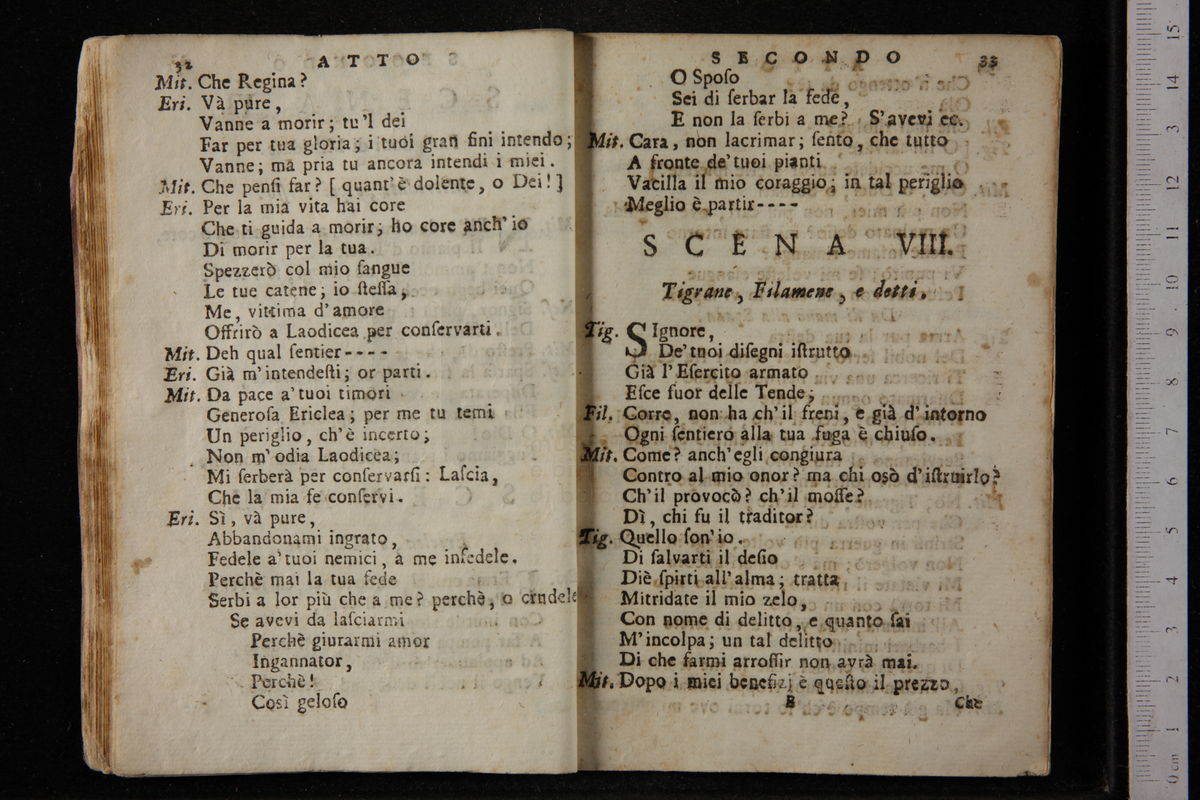 32 ATTO
Mit. Che Regina?
Eri. Và pure,
Vanne a morir; tu'l dei
Far per tua gloria; i tuoi gran fini intendo;
Vanne; ma pria tu ancora intendi i miei.
Mit. Che penſi far? [ quant'è dolente, o Dei! ]
Eri. Per la mia vita hai core
Che ti guida a morir; ho core anch'io
Di morir per la tua.
Spezzerò col mio ſangue
Le tue catene; io ſteſſa,
Me, vittima d'amore
Offrirò a Laodicea per conſervarti.
Mit. Deh qual ſentier----
Eri. Già m'intendeſti; or parti.
Mit. Da pace a'tuoi timori
Generoſa Ericlea; per me tu temi
Un periglio, ch'è incerto;
Non m'odia Laodicea;
Mi ſerberà per conſervarſi: Laſcia,
Che la mia fe conſervi.
Eri. Sì, và pure,
Abbandonami ingrato,
Fedele a'tuoi nemici, a me infedele.
Perchè mai la tua fede
Serbi a lor più che a me? perchè, o crudele
Se avevi da laſciarmi
Perchè giurarmi amor
Ingannator,
Perchè!
Così geloſo
SECONDO 33
O Spoſo
Sei di ſerbar la fede,
E non la ſerbi a me? S'avevi ec.
Mit. Cara, non lacrimar; ſento, che tutto
A fronte de'tuoi pianti
Vacilla il mio coraggio; in tal periglio
Meglio è partir----
SCENA VIII.
Tigrane, Filamene, e detti.
Tig. SIgnore,
De'tuoi diſegni iſtrutto
Già l'Eſercito armato
Eſce fuor delle Tende;
Fil. Corre, non ha ch'il freni, e già d'intorno
Ogni ſentiero alla tua fuga è chiuſo.
Mit. Come? anch'egli congiura
Contro al mio onor? ma chi osò d'iſtruirlo?
Ch'il provocò? ch'il moſſe?
Dì, chi fu il traditor?
Tig. Quello ſon'io.
Di ſalvarti il deſio
Diè ſpirti all'alma; tratta
Mitridate il mio zelo,
Con nome di delitto, e quanto ſai
M'incolpa; un tal delitto
Di che farmi arroſſir non avrà mai.
Mit. Dopo i miei benefizj è queſto il prezzo,
B Che